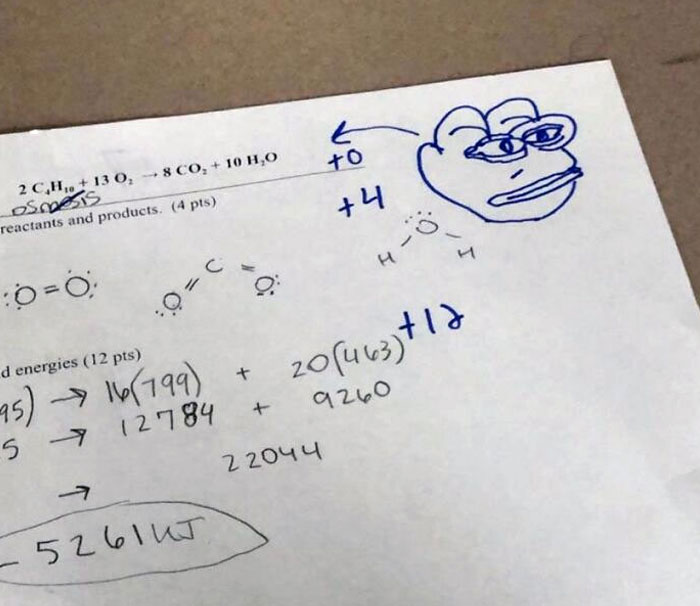 2 C₄H₁₀ + 13 O₂ → 8 CO₂ + 10 H₂O
+0
osmosis
reactants and products. (4 pts)
+4
:O=O:
O=C=O
H O H
d energies (12 pts)
+12
95) → 16(799) + 20(463)
5 → 12784 + 9260
→ 22044
- 5261 KJ